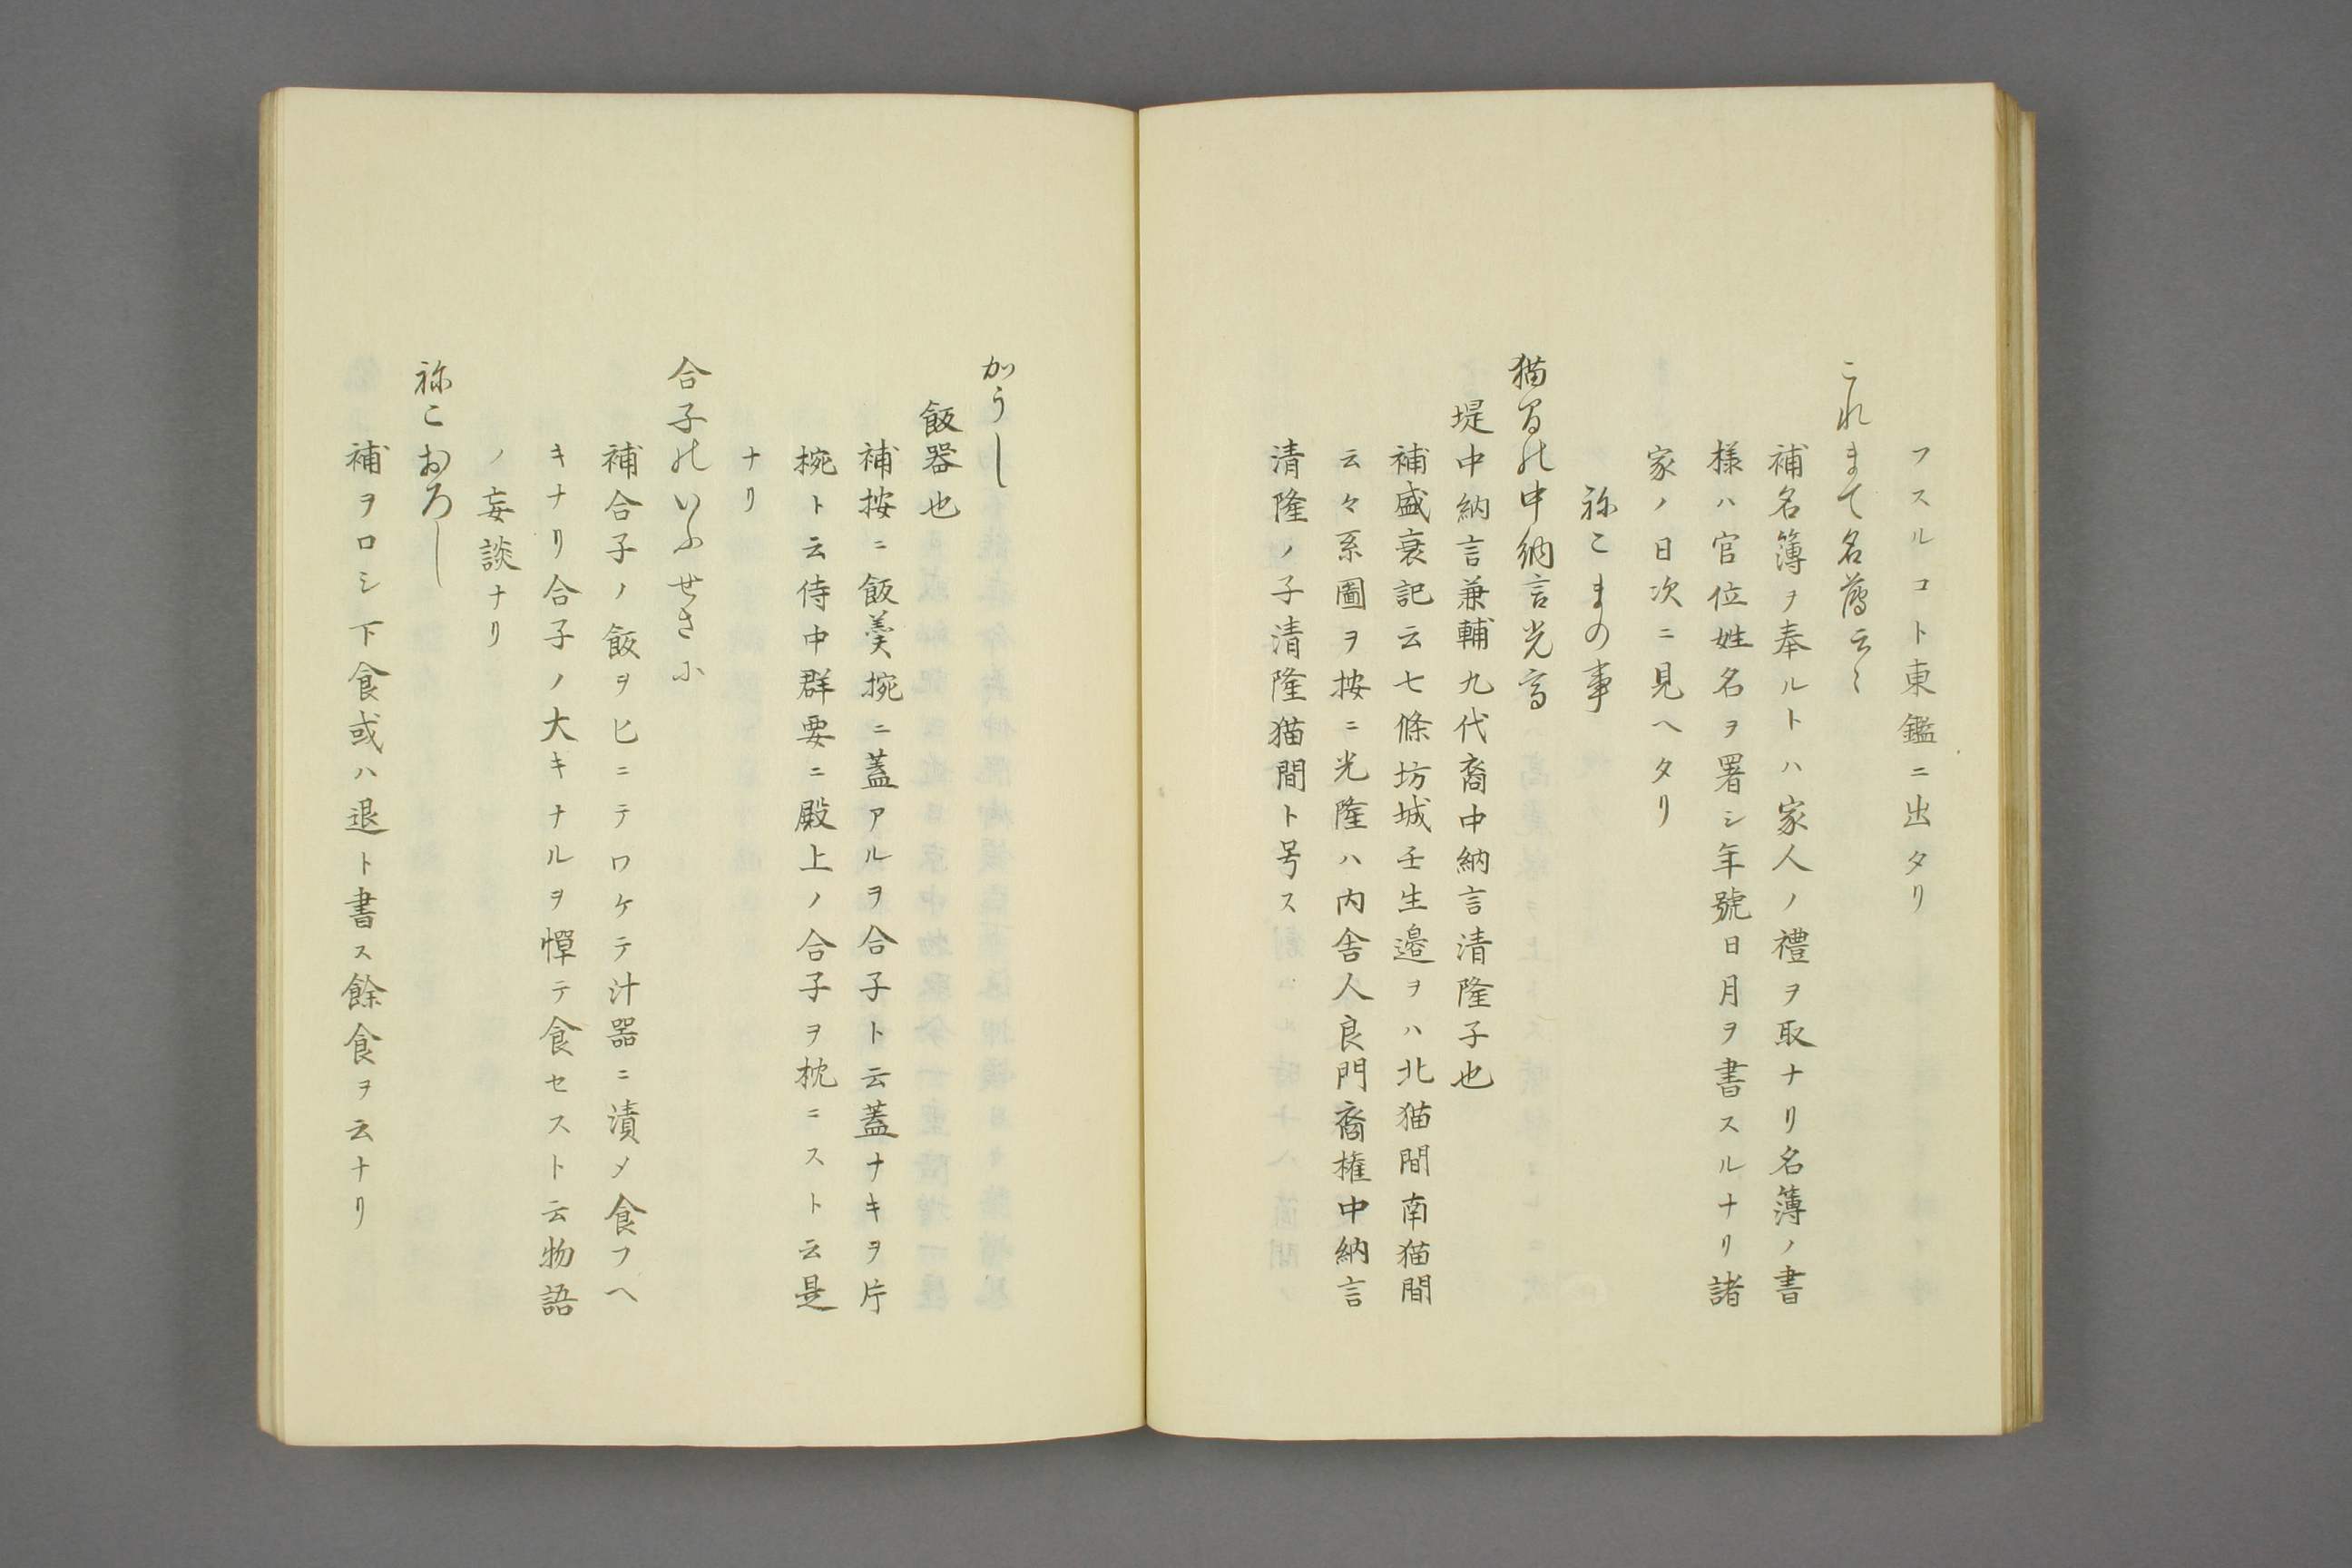 フスルコト東鑑ニ出タリ
これまて名簿云々
補名簿ヲ奉ルトハ家人ノ禮ヲ取ナリ名薄ノ書
様ハ官位姓名ヲ署シ年號日月ヲ書スルナリ諸
家ノ日次ニ見ヘタリ
祢こまの事
猫間の中納言光高
堤中納言兼輔九代裔中納言清隆子也
補盛衰記云七條坊城壬生邉ヲハ北猫間南猫間
云々系圖ヲ按ニ光隆ハ内舎人良門裔権中納言
清隆ノ子清隆猫間ト号ス
かうし
飯器也
補按ニ飯羹捥ニ蓋アルヲ合子ト云蓋ナキヲ片
椀ト云侍中群要ニ殿上ノ合子ヲ枕ニスト云是
ナリ
合子のいふせさに
補合子ノ飯ヲ匕ニテワケテ汁器ニ漬メ食フヘ
キナリ合子ノ大キナルヲ憚テ食セスト云物語
ノ妄談ナリ
祢こおろし
補ヲロシ下食或ハ退ト書ス餘食ヲ云ナリ